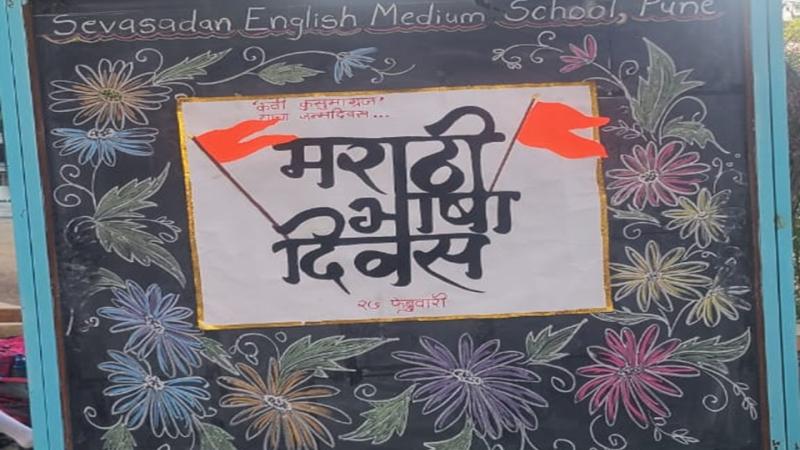 Sevasadan English Medium School, Pune
'कवी कुसुमाग्रज'
यांचा जन्मदिवस...
मराठी
भाषा
दिवस
२७ फेब्रुवारी